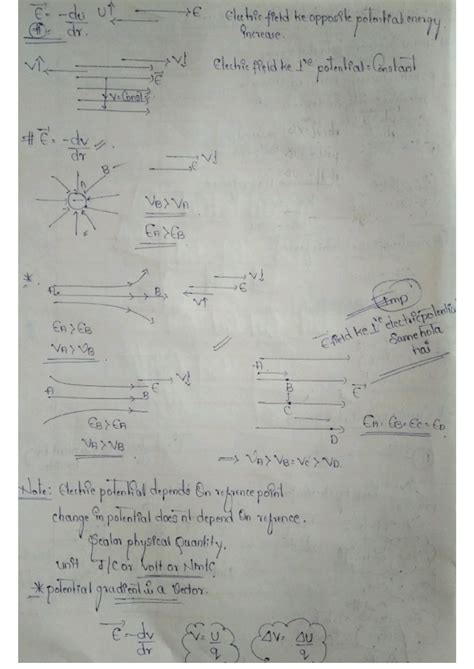 E⃗ = -du/dr. U↑ E Electric field ke opposite potential energy
⊕ increase.
V↑ V↓ E⃗ Electric field ke ⊥re potential = Constant
V = Const
# E⃗ = -dv/dr V↓ E
A B
VB > VA
EA > EB
* A B V↓ E V↑
Imp
E field ke ⊥re electric potential
Same hota
hai
EA > EB
VA > VB
A B E V↓
A B C D E⃗
EB > EA
VA > VB
EA = EB = EC = ED
⇒ VA > VB = VC > VD.
Note: Electric potential depends on refrence point
change in potential does nt depend on refrence.
Scalar physical Quantity.
unit J/C or Volt or Nm/C
* potential gradient is a Vector.
E⃗ = -dv/dr V = U/q ΔV = ΔU/q